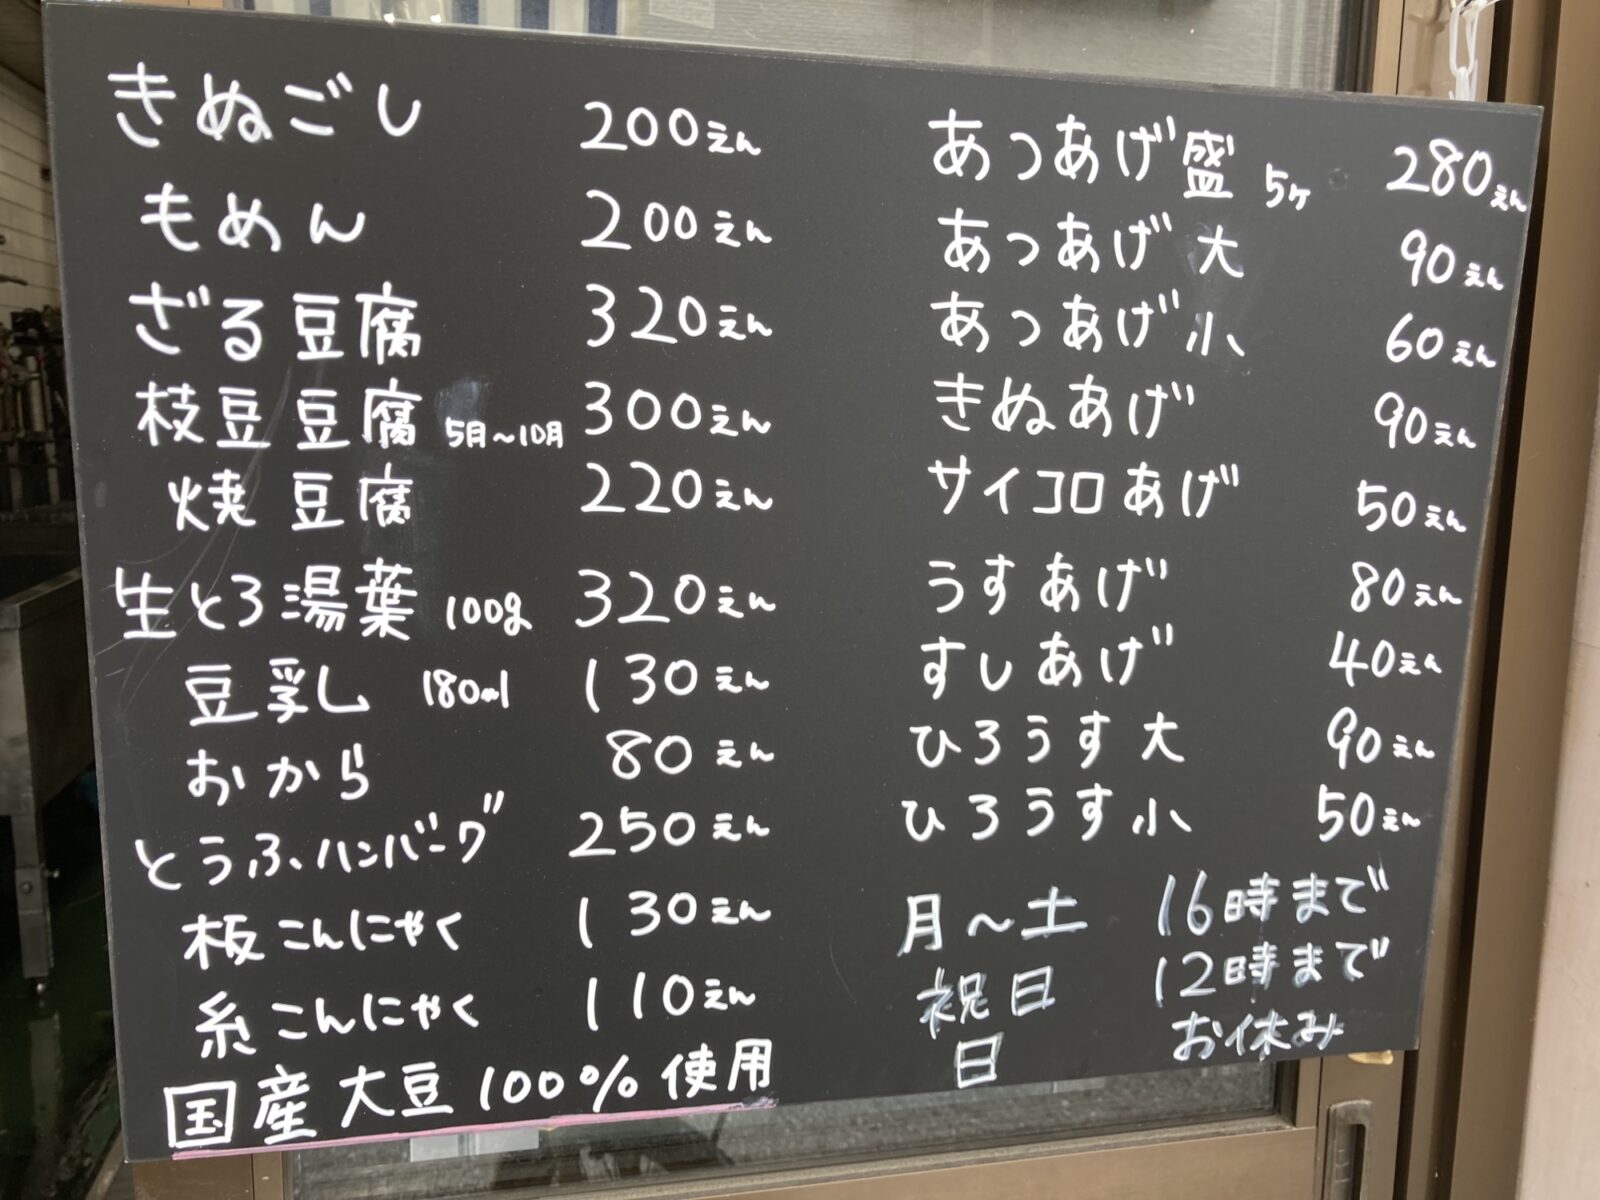 きぬごし 200えん
もめん 200えん
ざる豆腐 320えん
枝豆豆腐 5月〜10月 300えん
焼豆腐 220えん
生とろ湯葉 100g 320えん
豆乳 180ml 130えん
おから 80えん
とうふハンバーグ 250えん
板こんにゃく 130えん
糸こんにゃく 110えん
国産大豆100%使用
あつあげ盛 5ヶ 280えん
あつあげ大 90えん
あつあげ小 60えん
きぬあげ 90えん
サイコロあげ 50えん
うすあげ 80えん
すしあげ 40えん
ひろうす大 90えん
ひろうす小 50えん
月〜土 16時まで
祝日 12時まで
日 お休み